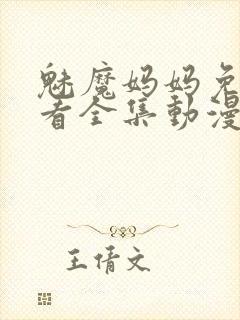 魅魔妈妈免
看全集動漫
王倩文